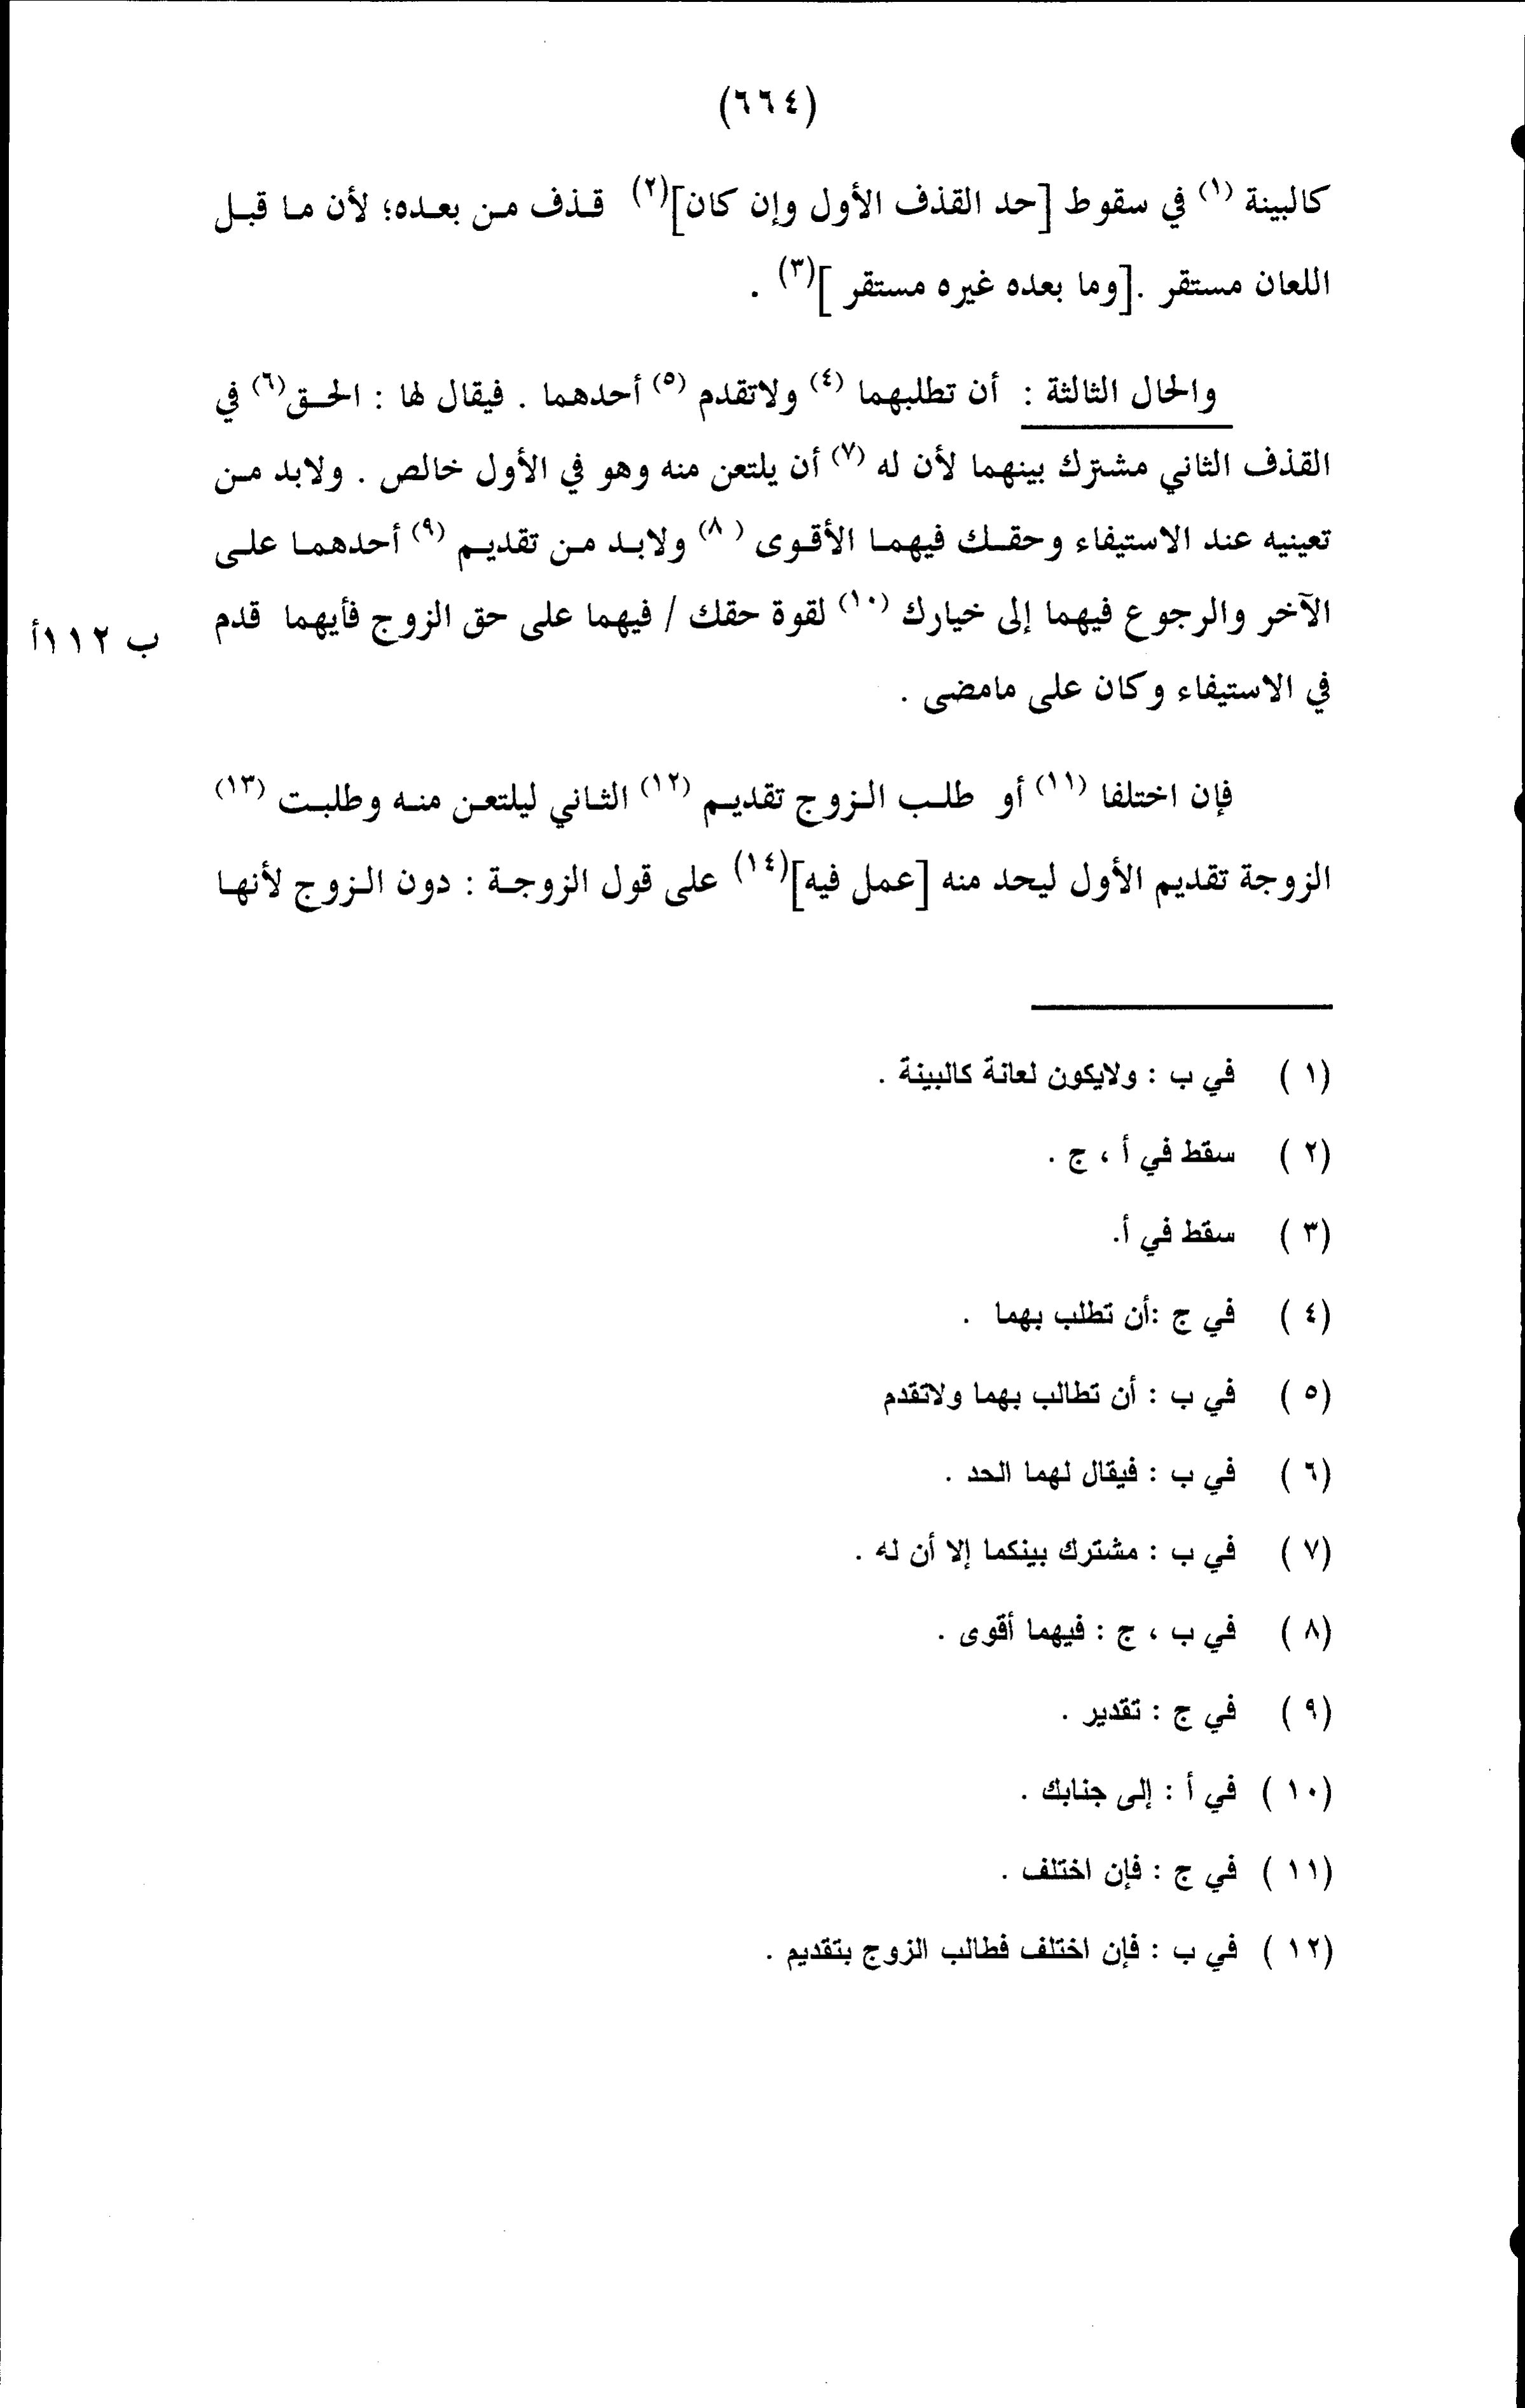 (٦٦٤)
كالبينة (١) في سقوط [حد القذف الأول وإن كان](٢) قذف من بعده؛ لأن ما قبل
اللعان مستقر .[وما بعده غيره مستقر ](٣) .
والحال الثالثة : أن تطلبهما (٤) ولاتقدم (٥) أحدهما . فيقال لها : الحق(٦) في
القذف الثاني مشترك بينهما لأن له (٧) أن يلتعن منه وهو في الأول خالص . ولابد من
تعينيه عند الاستيفاء وحقك فيهما الأقوى (٨) ولابد من تقديم (٩) أحدهما على
الآخر والرجوع فيهما إلى خيارك (١٠) لقوة حقك / فيهما على حق الزوج فأيهما قدم
ب ١١٢أ
في الاستيفاء وكان على مامضى .
فإن اختلفا (١١) أو طلب الزوج تقديم (١٢) الثاني ليلتعن منه وطلبت (١٣)
الزوجة تقديم الأول ليحد منه [عمل فيه](١٤) على قول الزوجة : دون الزوج لأنها
(١) في ب : ولايكون لعانة كالبينة .
(٢) سقط في أ ، ج .
(٣) سقط في أ.
(٤) في ج :أن تطلب بهما .
(٥) في ب : أن تطالب بهما ولاتقدم
(٦) في ب : فيقال لهما الحد .
(٧) في ب : مشترك بينكما إلا أن له .
(٨) في ب ، ج : فيهما أقوى .
(٩) في ج : تقدير .
(١٠) في أ : إلى جنابك .
(١١) في ج : فإن اختلف .
(١٢) في ب : فإن اختلف فطالب الزوج بتقديم .